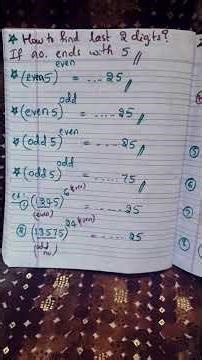 * How to find last 2 digits?
If no. ends with 5,,
* (even5)^even = ....25,,
* (even5)^odd = ....25,,
* (odd5)^even = ....25,,
* (odd5)^odd = .....75,,
ex: ① (1345)^6(even) = .....25
(even)
② (13575)^24(even) = .....25
(odd no.)